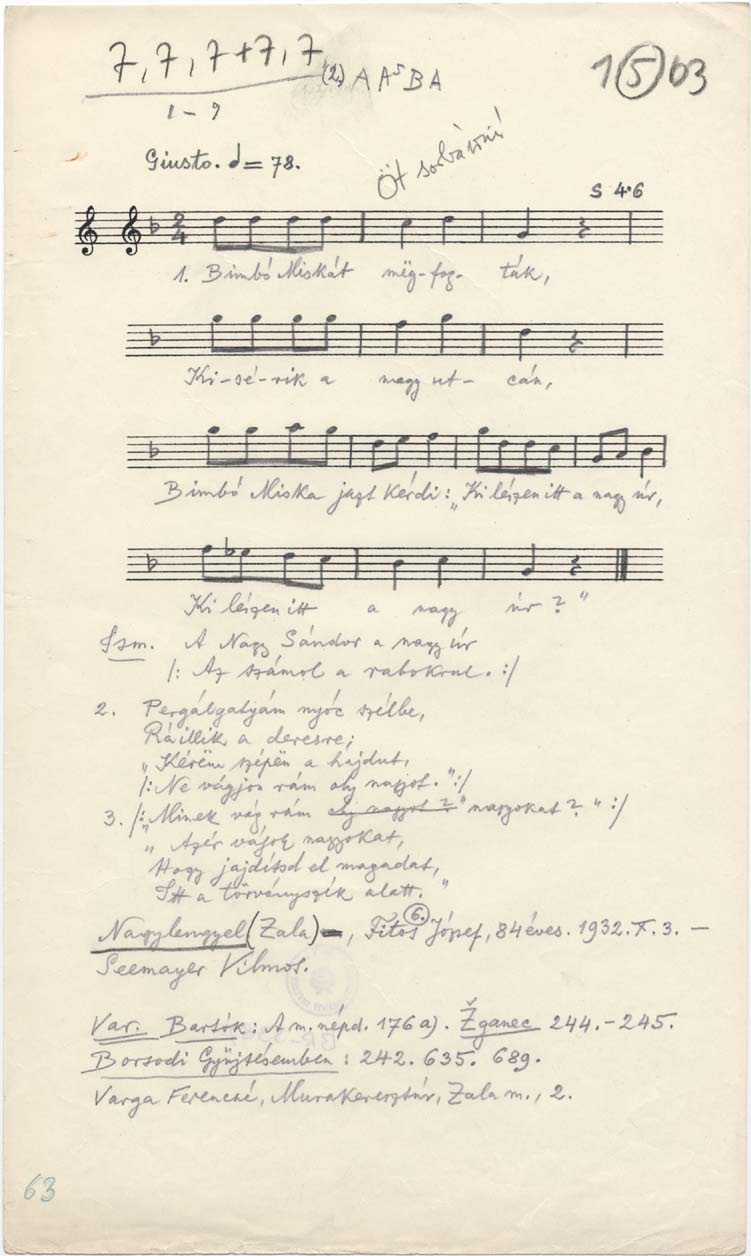 7, 7, 7+7, 7 (2) A A⁵ B A
1 – 9
1 5 63
Giusto. = 78.
S 4·6
2
4
1. Bimbó Miskát mëg-fog- ták,
Ki-sé-rik a nagy ut- cán,
Bimbó Miska jazt kérdi: „Ki lészen itt a nagy úr,
Ki lészen itt a nagy úr?"
Ism. A Nagy Sándor a nagy úr
/: Az számol a rabokrul. :/
2. Pergálgatyám nyóc szélbe,
Ráillik a deresre;
„Kérëm szépën a hajdut,
/: Ne vágjon rám oly naszot." :/
3. /: „Minek vág rám oly naszot?" naszokat?" :/
„Azér vágok naszokat,
Hogy jajdítsd el magadat,
Itt a törvényszík alatt."
Nagylengyel (Zala), Fitos József, 84 éves. 1932. X. 3. –
6.
Seemayer Vilmos.
Var. Bartók: A m. népd. 176 a). Žganec 244.–245.
Borsodi Gyüjtésemben: 242. 635. 689.
Varga Ferencné, Murakeresztúr, Zala m., 2.
63